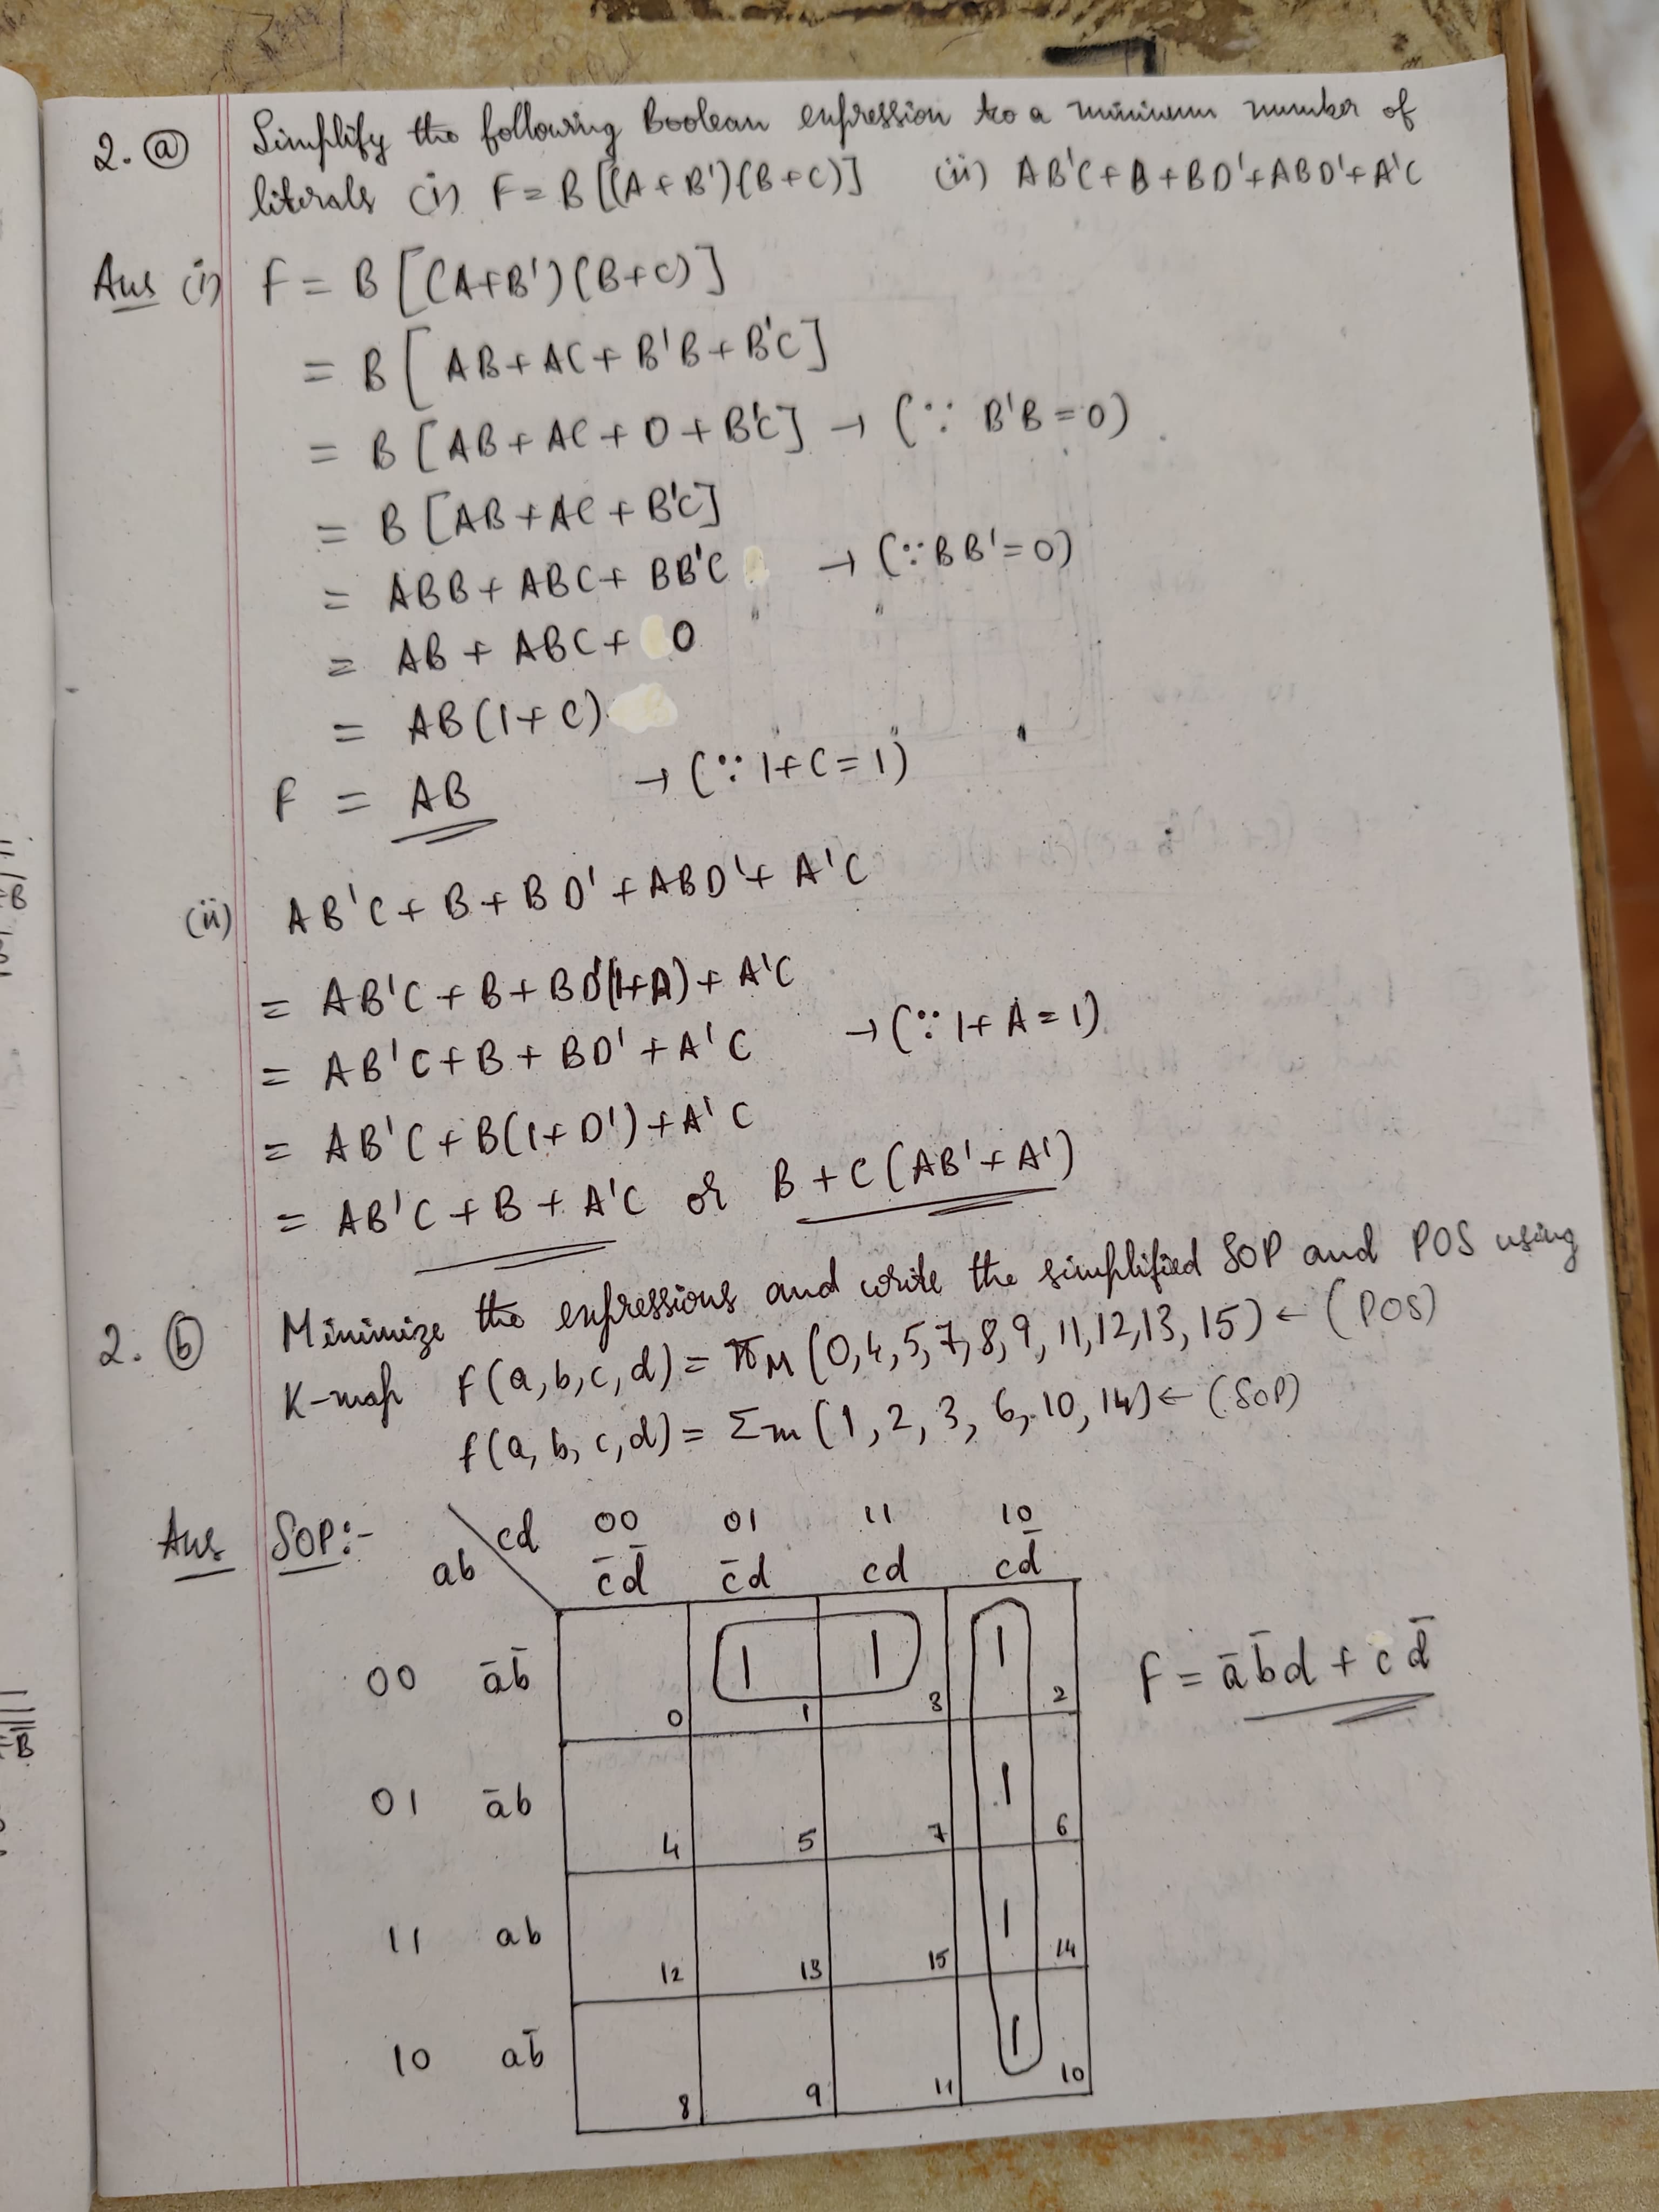 2. (a) Simplify the following Boolean expression to a minimum number of
literals (i) F = B[(A+B')(B+C)] (ii) AB'C+B+BD'+ABD'+A'C
Ans (i) F = B[(A+B')(B+C)]
= B[AB+AC+B'B+B'C]
= B[AB+AC+0+B'C] → (∵ B'B=0)
= B[AB+AC+B'C]
= ABB+ABC+BB'C → (∵BB'=0)
= AB+ABC+0
= AB(1+C)
F = AB → (∵1+C=1)
(ii) AB'C+B+BD'+ABD'+A'C
= AB'C+B+BD'(1+A)+A'C
= AB'C+B+BD'+A'C → (∵1+A=1)
= AB'C+B(1+D')+A'C
= AB'C+B+A'C or B+C(AB'+A')
2. (b) Minimize the expressions and write the simplified SOP and POS using
K-map f(a,b,c,d) = πM(0,4,5,7,8,9,11,12,13,15) ← (POS)
f(a,b,c,d) = Σm(1,2,3,6,10,14) ← (SOP)
Ans SOP:-
cd 00 01 11 10
ab c̄d̄ c̄d cd cd̄
00 āb̄ 1 1 1
0 1 3 2
F = āb̄d + cd̄
01 āb 1
4 5 7 6
11 ab 1
12 13 15 14
10 ab̄ 1
8 9 11 10